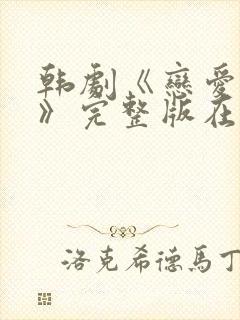 韩劇《戀愛
》完整版在
洛克希德馬丁